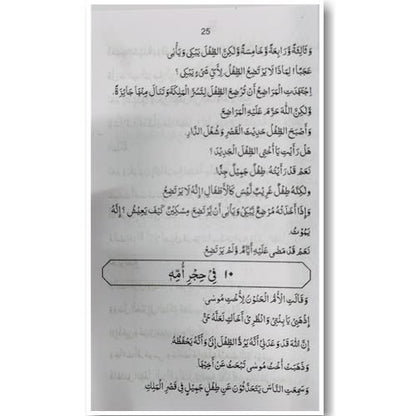 25
وَثَالِثَةٌ وَّرَابِعَةٌ وَّخَامِسَةٌ وَّلٰكِنَّ الطِّفْلَ يَبْكِيْ وَيَأْبٰى
عَجَبًا لِمَاذَا لَا يَرْتَضِعُ الطِّفْلُ لِأَيِّ شَيْءٍ يَبْكِيْ؟
اِجْتَهَدَتِ الْمَرَاضِعُ أَنْ تُرْضِعَ الطِّفْلَ لِتَسُرَّ الْمَلِكَةَ وَتَنَالَ مِنْهَا جَائِزَةً.
وَّلٰكِنَّ اللّٰهَ حَرَّمَ عَلَيْهِ الْمَرَاضِعَ
وَأَصْبَحَ الطِّفْلُ حَدِيْثَ الْقَصْرِ وَشُغْلَ الدَّارِ.
هَلْ رَأَيْتِ يَا أُخْتِيْ الطِّفْلَ الْجَدِيْدَ؟
نَعَمْ قَدْ رَأَيْتُهُ، طِفْلٌ جَمِيْلٌ جِدًّا.
وَلٰكِنَّهُ طِفْلٌ غَرِيْبٌ لَيْسَ كَالْأَطْفَالِ! إِنَّهُ لَا يَرْتَضِعُ
وَإِذَا أَخَذَتْهُ مُرْضِعٌ يَبْكِيْ وَيَأْبٰى أَنْ يَرْتَضِعَ مِسْكِيْنٌ كَيْفَ يَعِيْشُ؟ إِنَّهُ
يَمُوْتُ.
نَعَمْ قَدْ مَضٰى عَلَيْهِ أَيَّامٌ وَّلَمْ يَرْتَضِعْ
١٠ فِيْ حِجْرِ أُمِّهٖ
وَقَالَتِ الْأُمُّ الْحَنُوْنُ لِأُخْتِ مُوسٰى
اِذْهَبِيْ يَا بِنْتِيْ وَانْظُرِيْ أَخَاكِ لَعَلَّهُ حَيٌّ
إِنَّ اللّٰهَ قَدْ وَعَدَنِيْ أَنَّهُ يَرُدُّ الطِّفْلَ إِلَيَّ وَأَنَّهُ يَحْفَظُهُ
وَذَهَبَتْ أُخْتُ مُوسٰى تَبْحَثُ عَنْ أَخِيْهَا
وَسَمِعَتِ النَّاسَ يَتَحَدَّثُوْنَ عَنْ طِفْلٍ جَمِيْلٍ فِيْ قَصْرِ الْمَلِكِ